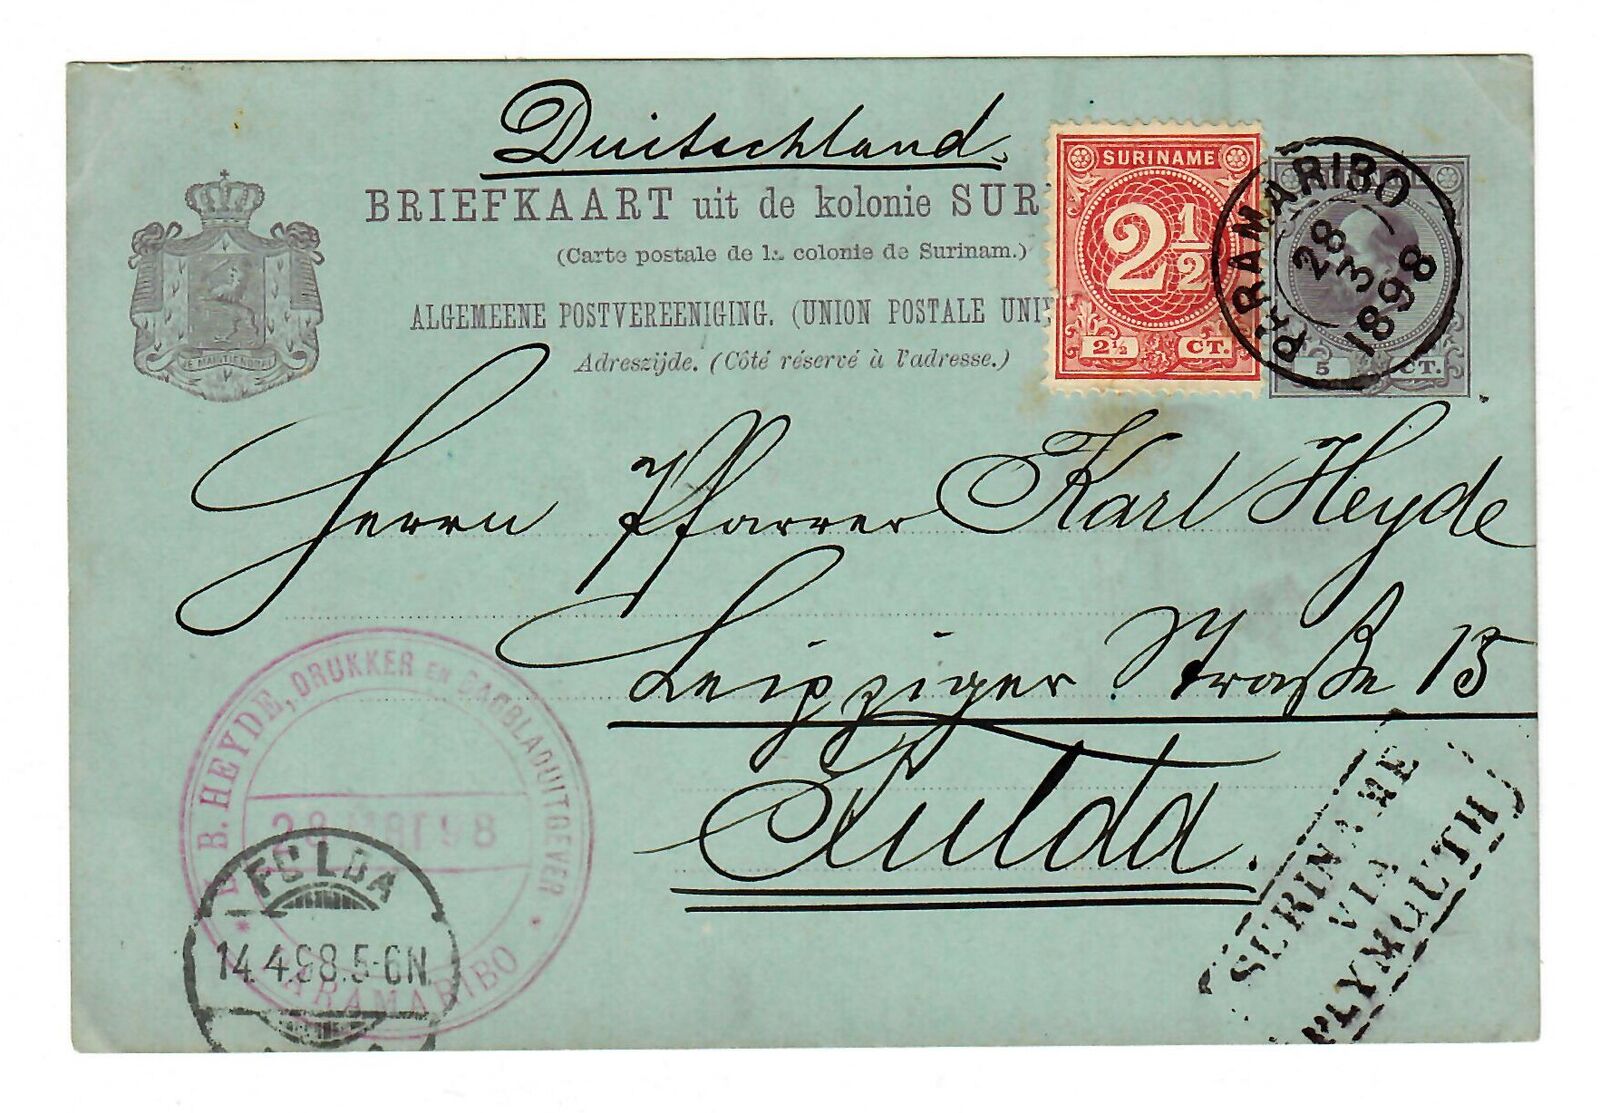 Duitschland.
BRIEFKAART uit de kolonie SUR
(Carte postale de la colonie de Surinam.)
ALGEMEENE POSTVEREENIGING. (UNION POSTALE UNI
Adreszijde. (Côté réservé à l'adresse.)
JE MAINTIENDRAI
SURINAME
2½
2½ CT.
PARAMARIBO
28
3
1898
5 CT.
Herrn Pfarrer Karl Heyde
Leipziger Straße 15
Fulda.
B. HEYDE, DRUKKER EN DAGBLADUITGEVER
28 MRT 98
* PARAMARIBO *
FULDA
14.4.98.5-6N
SURINAME
VIA
PLYMOUTH